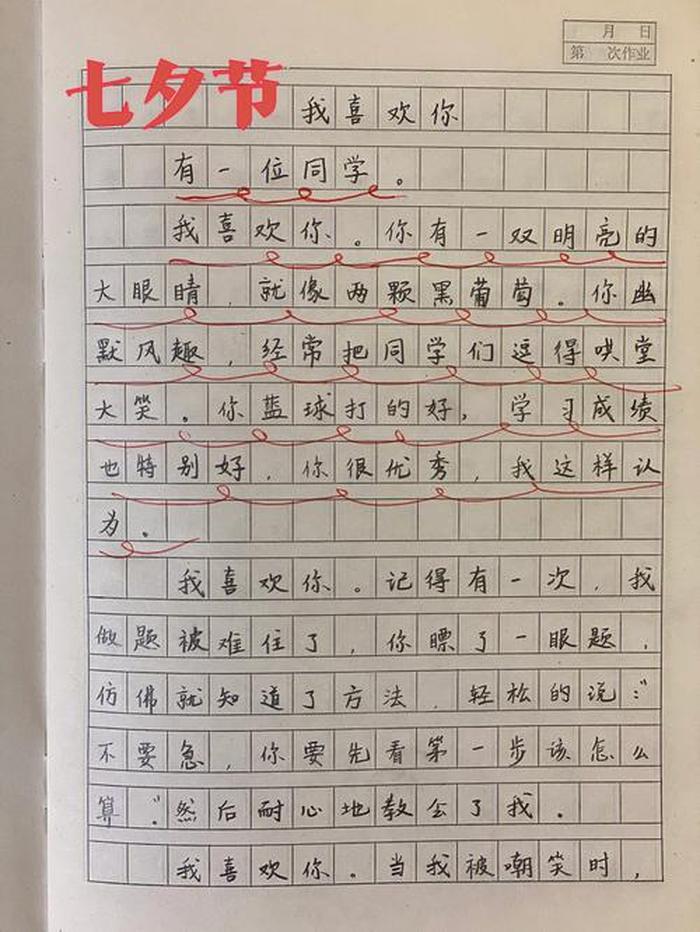 月 日
第 次作业
七夕节
我喜欢你
有一位同学。
我喜欢你。你有一双明亮的
大眼睛，就像两颗黑葡萄。你幽
默风趣，经常把同学们逗得哄堂
大笑。你蓝球打的好，学习成绩
也特别好，你很优秀，我这样认
为。
我喜欢你。记得有一次，我
做题被难住了，你瞟了一眼题，
仿佛就知道了方法，轻松的说：“
不要急，你要先看第一步该怎么
算”。然后耐心地教会了我。
我喜欢你。当我被嘲笑时，